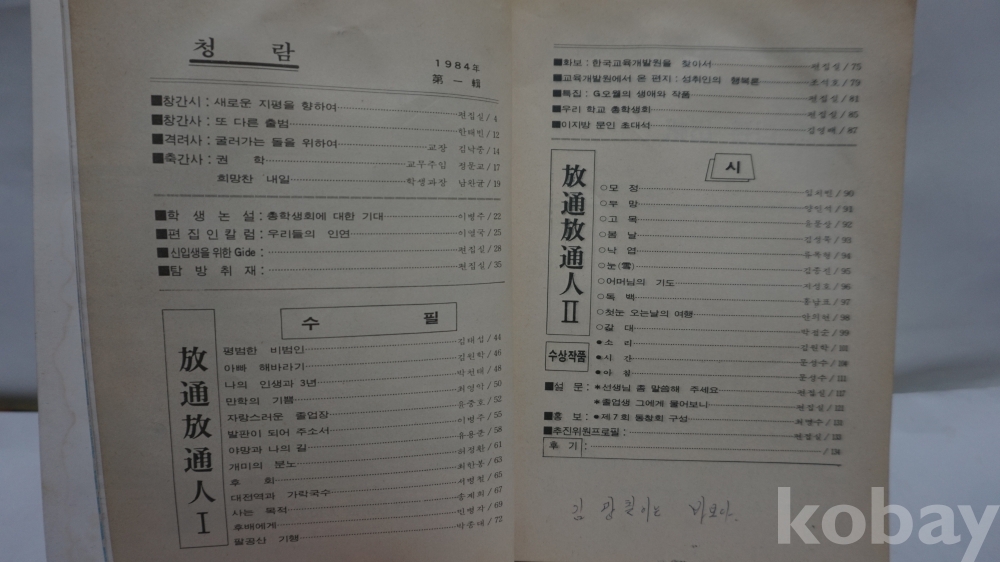 청 람
1984年
第一輯
■창간시 : 새로운 지평을 향하여 편집실/4
■창간사 : 또 다른 출범 한태민/12
■격려사 : 굴러가는 돌을 위하여 교장 김낙중/14
■축간사 : 권 학 교무주임 정문교/17
희망찬 내일 학생과장 남찬굴/19
■학 생 논 설 : 총학생회에 대한 기대 이병수/22
■편 집 인 칼 럼 : 우리들의 인연 이영국/25
■신입생을 위한 Gide : 편집실/29
■탐 방 취 재 : 편집실/35
수 필
放通放通人 I
평범한 비범인 김태섭/44
아빠 해바라기 김원학/46
나의 인생과 3년 박선태/48
만학의 기쁨 최영락/50
자랑스러운 졸업장 윤중호/52
발판이 되어 주소서 이병주/55
야망과 나의 길 유용준/58
개미의 분노 허정환/61
후 회 최한봉/63
대전역과 가락국수 서병철/65
사는 목적 송제희/67
후배에게 민영자/69
팔공산 기행 박종대/72
■화보 : 한국교육개발원을 찾아서 편집실/75
■교육개발원에서 온 편지 : 섭취인의 행복론 조석호/79
■특집 : G.모월의 생애와 작품 편집실/81
■우리 학교 총학생회 편집실/85
■이지방 문인 초대석 김영배/87
시
放通放通人 II
○모 정 /90
○부 망 /91
○고 목 /92
○봄 날 김경욱/93
○낙 엽 /94
○눈(雪) 김종선/95
○어머님의 기도 지성호/96
○독 백 홍남표/97
○첫눈 오는날의 여행 /98
○갈 대 박철순/99
수상작품
●소 리 김원학/101
●시 간 문성수/108
●아 침 문성수/111
■설 문 : *선생님 좀 말씀해 주세요 편집실/117
*졸업생 그에게 물어보니 편집실/125
■홍 보 : ●제7회 동창회 구성 최병수/131
■추진위원프로필 : 편집실/133
후 기 : /134
김 광철이는 바보야.
kobay